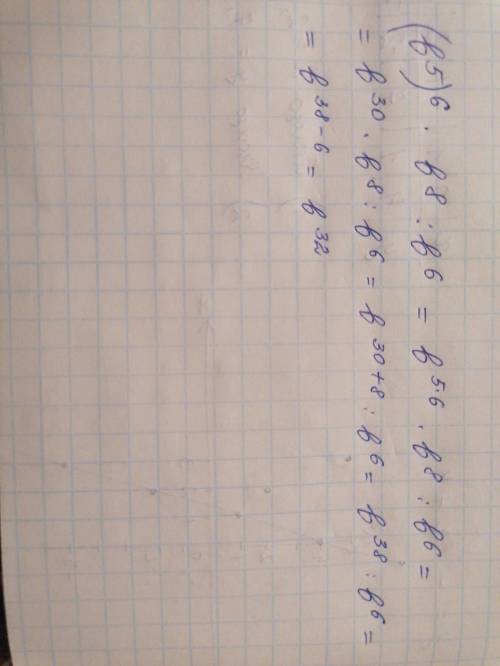 (b⁵)⁶ · b⁸ : b⁶ = b⁵·⁶ · b⁸ : b⁶ =
= b³⁰ · b⁸ : b⁶ = b³⁰⁺⁸ : b⁶ = b³⁸ : b⁶ =
= b³⁸⁻⁶ = b³²